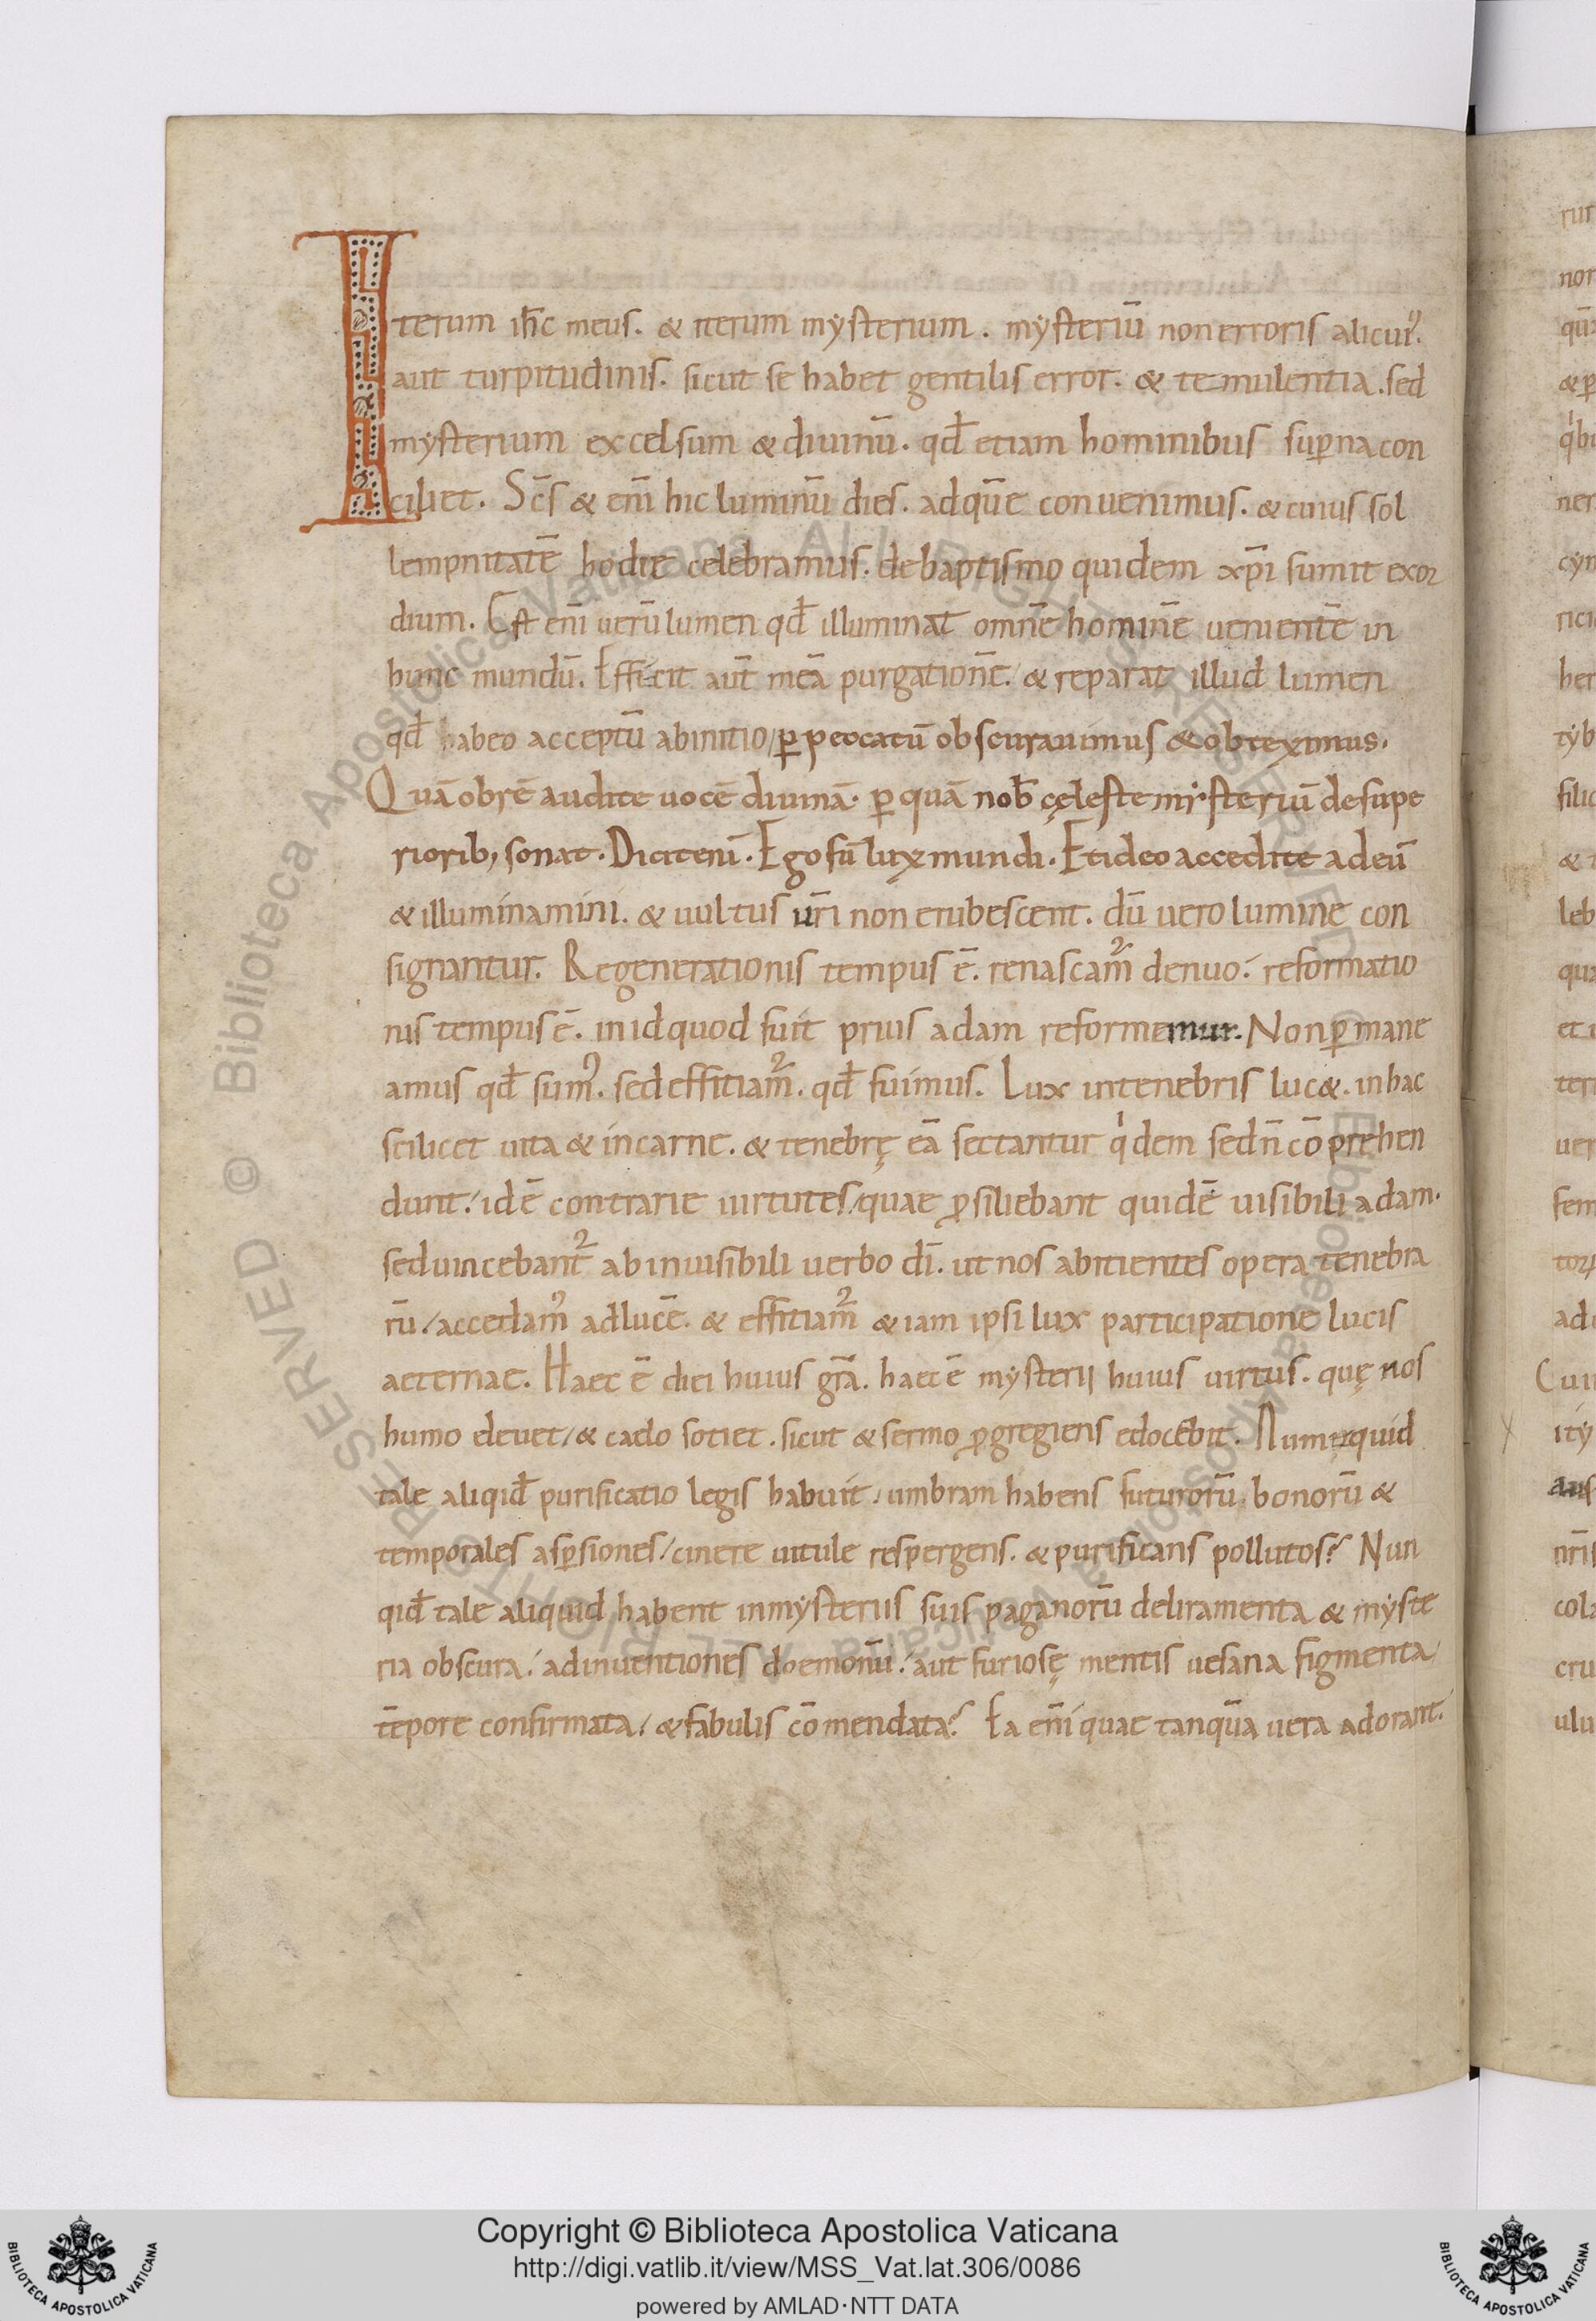 Iterum ih̄c meus. & iterum mysterium. mysteriū non erroris alicui᾽.
aut turpitudinis. sicut se habet gentilis error. & temulentia. sed
mysterium excelsum & diuinū. qd̄ etiam hominibus sup̄na con
ciliet. Sc̄s & enī hic luminū dies. ad quē conuenimus. & cuius sol
lempnitatē hodie celebramus. de baptismo quidem xp̄i sumit exor
dium. Est enī uerū lumen qd̄ illuminat omnē hominē uenientē in
hunc mundū. Efficit aūt meā purgationē. & reparat illud lumen
qd̄ habeo acceptū ab initio / ꝑ peccatū obscurauimus & obteximus.
Quā ob rē audite uocē diuinā. ꝑ quā nob̄ cęleste mysteriū de supe
riorib; sonat. Dicit enī. Ego sū lux mundi. Et ideo accedite ad eū
& illuminamini. & uultus ur̄i non erubescent. dū uero lumine con
signantur. Regenerationis tempus ē. renascam̄ denuo. reformatio
nis tempus ē. in id quod fuit prius adam reformemur. Non ꝑmane
amus qd̄ sum᾽. sed effitiam̄. qd̄ fuimus. Lux in tenebris luc&. in hac
scilicet uita & in carne. & tenebrę eā sectantur qͥdem sed n̄ cōprehen
dunt. id ē contrarie uirtutes / quae ꝓsiliebant quidē uisibili adam.
sed uincebant̄ ab inuisibili uerbo dī. ut nos abitientes opera tenebra
rū / accedam᾽ ad lucē. & effitiam̄ & iam ipsi lux participatione lucis
aeternae. Haec ē diei huius gr̄a. haec ē mysterii huius uirtus. quę nos
humo eleuet / & caelo sotiet. sicut & sermo ꝓgregiens edocebit. Numquid
tale aliqid̄ purificatio legis habuit / umbram habens futurorū bonorū &
temporales asꝑsiones / cinere uitule respergens. & purificans pollutos? Nun
qid̄ tale aliquid habent in mysteriis suis paganorū deliramenta & myste
ria obscura / adinuentiones doemonū / aut furiosę mentis uesana figmenta /
tēpore confirmata / & fabulis cōmendata? Ea enī quae tanquā uera adorant.
Copyright © Biblioteca Apostolica Vaticana
http://digi.vatlib.it/view/MSS_Vat.lat.306/0086
powered by AMLAD·NTT DATA